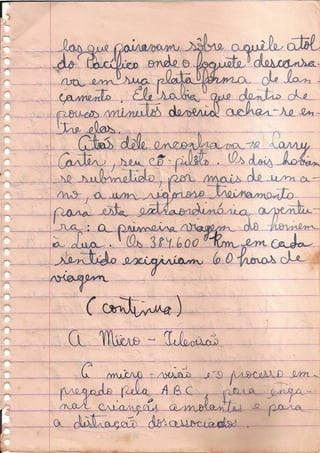 las que pairavam sôbre aquêle atól
do Pacífico onde o foguete descansa-
va em sua plataforma de lan-
çamento. Ele sabia que dentro de
poucos minutos deveria achar-se en-
tre elas.
Atrás dêle encontrava-se Larry
Carter, seu co-pilôto. Os dois haviam
se submetido, por mais de um a-
no, a um rigoroso treinamento
para esta extraordinária aventu-
ra: a primeira viagem do homem
à Lua. Os 384.600 Km em cada
sentido exigiriam 60 horas de
viagem
(continua)
A Micro - Televisão
A micro-visão é o processo em-
pregado pela ABC para enga-
nar crianças amolantes e para
a distração dos associados.